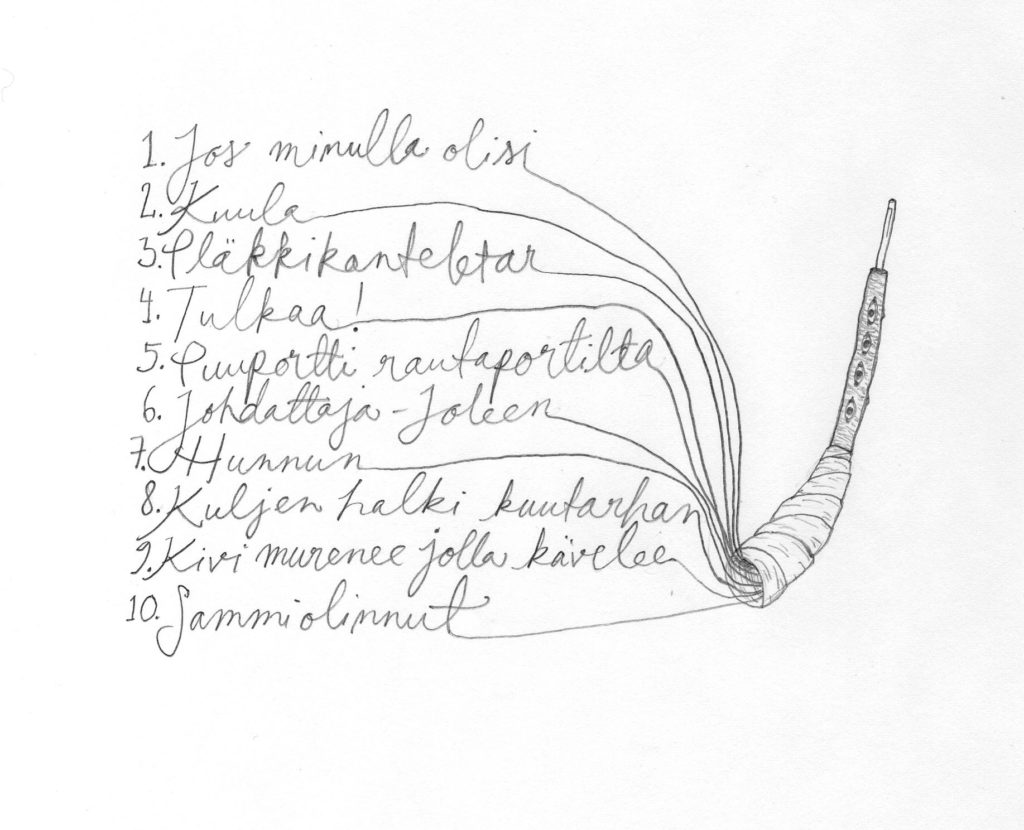 1. Jos minulla olisi
2. Kuula
3. Pläkkikanteletar
4. Tulkaa!
5. Puuportti rautaportilta
6. Johdattaja-Joleen
7. Hunnun
8. Kuljen halki kuutarhan
9. Kivi murenee jolla kävelee
10. Sammiolinnut